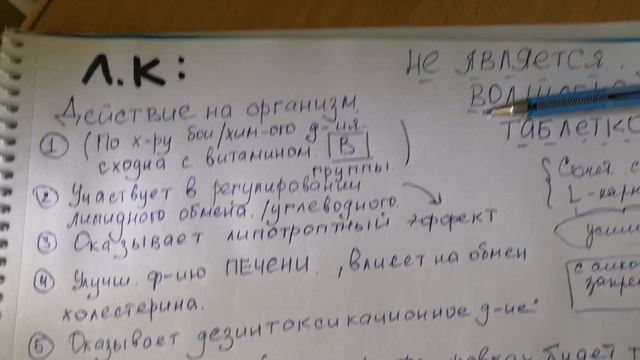 Л.К:
Действие на организм.
① (По х-ру био/хим-ого д-ия
сходна с витамином В
группы. )
② Участвует в регулировании
липидного обмена./углеводного.
③ Оказывает липотропный эффект
④ Улучш. ф-ию ПЕЧЕНИ., влияет на обмен
холестерина.
⑤ Оказывает дезинтоксикационное д-ие:
не является
ТАБЛЕТКО
{ L-кар
усили
с алко
запре
будет